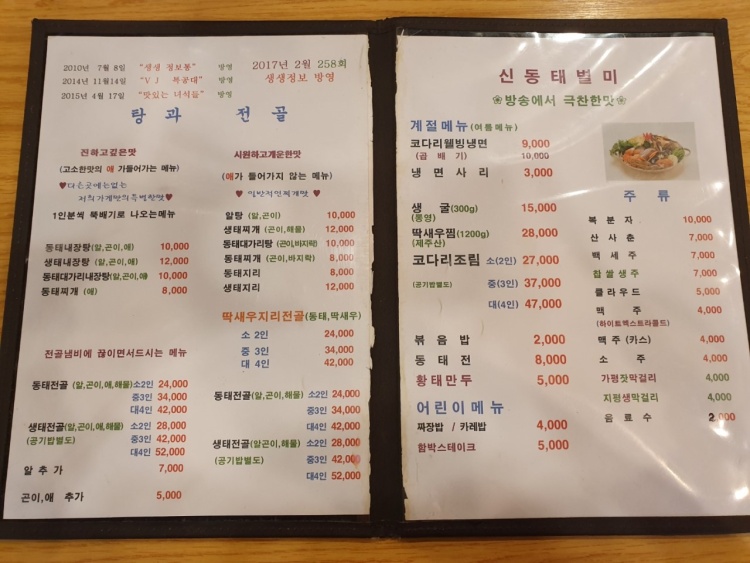 2010년 7월 8일 "생생 정보통" 방영
2014년 11월14일 "V J 특공대" 방영
2015년 4월 17일 "맛있는 녀석들" 방영
2017년 2월 258회
생생정보 방영
탕 과 전 골
진하고깊은맛
(고소한맛의 애 가들어가는 메뉴)
♥다른곳에는없는
저희가게만의특별한맛♥
1인분씩 뚝배기로 나오는메뉴
동태내장탕(알,곤이,애) 10,000
생태내장탕(알,곤이,애) 12,000
동태대가리내장탕(알,곤이,애) 10,000
동태찌개 (애) 8,000
전골냄비에 끊이면서드시는 메뉴
동태전골 (알,곤이,애,해물)소2인 24,000
중3인 34,000
대4인 42,000
생태전골(알,곤이,애,해물) 소2인 28,000
(공기밥별도) 중3인 42,000
대4인 52,000
알 추 가 7,000
곤이,애 추가 5,000
시원하고개운한맛
(애가 들어가지 않는 메뉴)
♥ 일반적인찌개맛 ♥
알탕 (알,곤이) 10,000
생태찌개 (곤이,해물) 12,000
동태대가리탕 (곤이,바지락) 10,000
동태찌개 (곤이,바지락) 8,000
동태지리 8,000
생태지리 12,000
딱새우지리전골(동태,딱새우)
소 2인 24,000
중 3인 34,000
대 4인 42,000
동태전골(알,곤이,해물) 소2인 24,000
중3인 34,000
대4인 42,000
생태전골(알곤이,해물) 소2인 28,000
(공기밥별도) 중3인 42,000
대4인 52,000
신동태별미
❀방송에서 극찬한맛❀
계절메뉴(여름메뉴)
코다리웰빙냉면 9,000
(곱 배 기) 10,000
냉 면 사 리 3,000
생 굴(300g) 15,000
(통영)
딱새우찜(1200g) 28,000
(제주산)
코다리조림 소(2인) 27,000
(공기밥별도) 중(3인) 37,000
대(4인) 47,000
볶 음 밥 2,000
동 태 전 8,000
황태만두 5,000
어린이메뉴
짜장밥 / 카레밥 4,000
함박스테이크 5,000
주 류
복 분 자 10,000
산 사 춘 7,000
백 세 주 7,000
참 쌀 생 주 7,000
클 라 우 드 5,000
맥 주 4,000
(하이트맥스트라클드)
맥 주 (카스) 4,000
소 주 4,000
가평잣막걸리 4,000
지평생막걸리 4,000
음 료 수 2,000